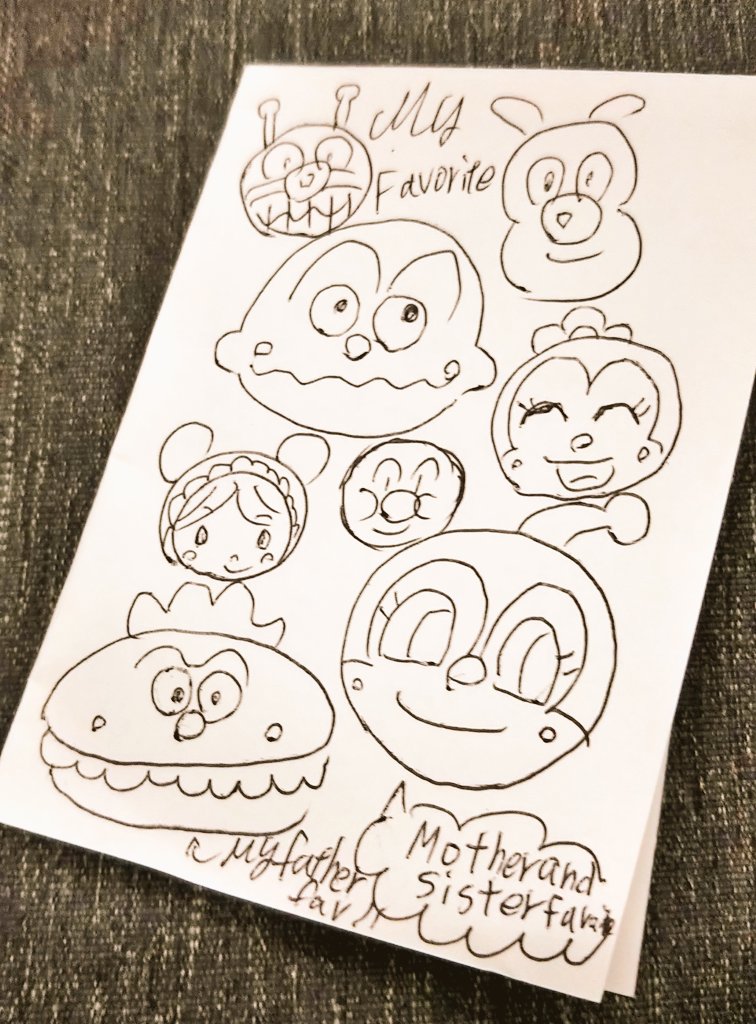 My
Favorite
My father
fav
Mother and
sister